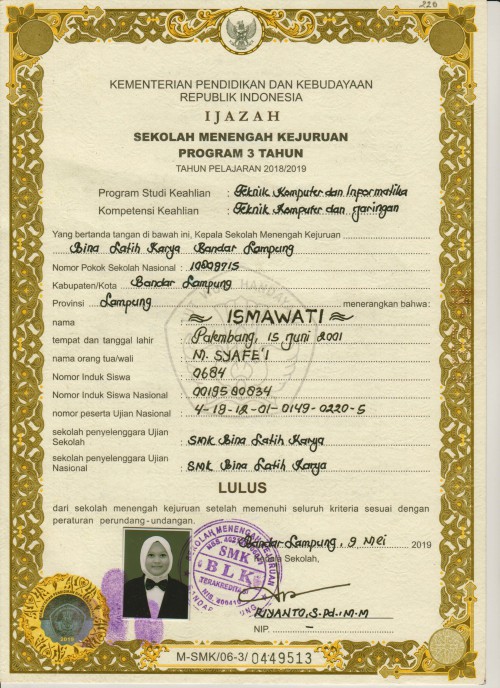 220
KEMENTERIAN PENDIDIKAN DAN KEBUDAYAAN
REPUBLIK INDONESIA
IJAZAH
SEKOLAH MENENGAH KEJURUAN
PROGRAM 3 TAHUN
TAHUN PELAJARAN 2018/2019
Program Studi Keahlian : Teknik Komputer dan Informatika
Kompetensi Keahlian : Teknik Komputer dan Jaringan
Yang bertanda tangan di bawah ini, Kepala Sekolah Menengah Kejuruan
Bina Latih Karya Bandar Lampung
Nomor Pokok Sekolah Nasional : 10808715
Kabupaten/Kota Bandar Lampung
Provinsi Lampung menerangkan bahwa:
nama : ISMAWATI
tempat dan tanggal lahir : Palembang, 15 Juni 2001
nama orang tua/wali : M. SYAFE'I
Nomor Induk Siswa : 0684
Nomor Induk Siswa Nasional : 0019580834
nomor peserta Ujian Nasional : 4-19-12-01-0149-0220-5
sekolah penyelenggara Ujian
Sekolah : SMK Bina Latih Karya
sekolah penyelenggara Ujian
Nasional : SMK Bina Latih Karya
LULUS
dari sekolah menengah kejuruan setelah memenuhi seluruh kriteria sesuai dengan
peraturan perundang-undangan.
Bandar Lampung, 9 Mei 2019
Kepala Sekolah,
SEKOLAH MENENGAH KEJURUAN
SMK
BLK
TERAKREDITASI
RIYANTO, S.Pd., M.M
NIP. –
2019
M-SMK/06-3/ 0449513